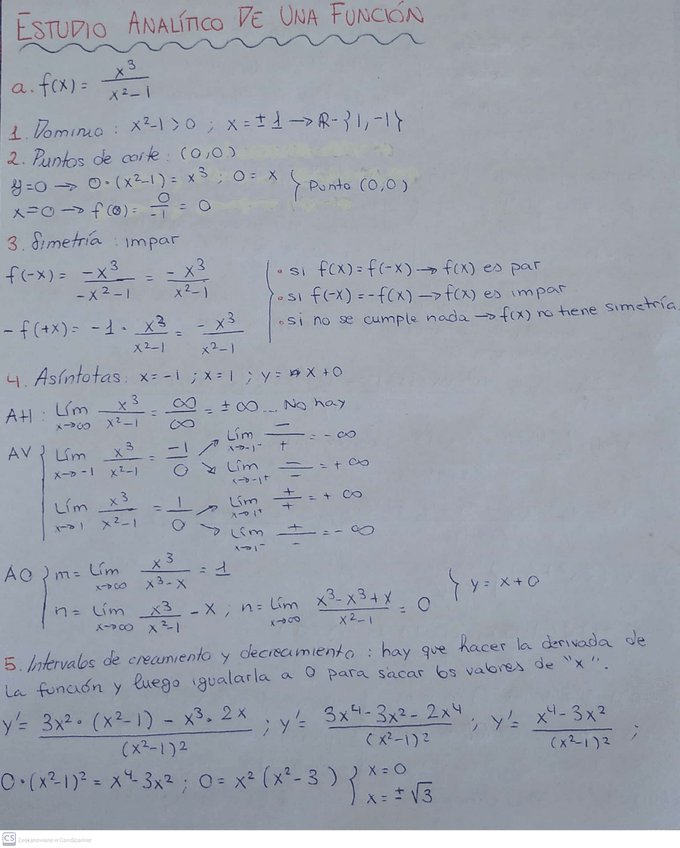 ESTUDIO ANALÍTICO DE UNA FUNCIÓN
a. f(x) = x³ / x²-1
1. Dominio: x²-1>0 ; x = ±1 → R-{1,-1}
2. Puntos de corte: (0,0)
y=0 → 0·(x²-1) = x³ ; 0 = x } Punto (0,0)
x=0 → f(0) = 0/-1 = 0
3. Simetría: impar
f(-x) = -x³ / -x²-1 = -x³ / x²-1
-f(+x) = -1 · x³ / x²-1 = -x³ / x²-1
• si f(x) = f(-x) → f(x) es par
• si f(-x) = -f(x) → f(x) es impar
• si no se cumple nada → f(x) no tiene simetría.
4. Asíntotas: x = -1 ; x = 1 ; y = x + 0
AH: Lím x→∞ x³ / x²-1 = ∞/∞ = ±∞ ... No hay
AV { Lím x→-1 x³ / x²-1 = -1/0 ↗ Lím x→-1⁻ -/+ = -∞
↘ Lím x→-1⁺ -/- = +∞
Lím x→1 x³ / x²-1 = 1/0 ↗ Lím x→1⁺ +/+ = +∞
↘ Lím x→1⁻ +/- = -∞
AO { m = Lím x→∞ x³ / x³-x = 1
n = Lím x→∞ x³ / x²-1 - x ; n = Lím x→∞ x³-x³+x / x²-1 = 0 } y = x+0
5. Intervalos de crecimiento y decrecimiento: hay que hacer la derivada de
la función y luego igualarla a 0 para sacar los valores de "x".
y' = 3x²·(x²-1) - x³·2x / (x²-1)² ; y' = 3x⁴-3x²-2x⁴ / (x²-1)² ; y' = x⁴-3x² / (x²-1)² ;
0·(x²-1)² = x⁴-3x² ; 0 = x²(x²-3) { x=0
x = ±√3
CS